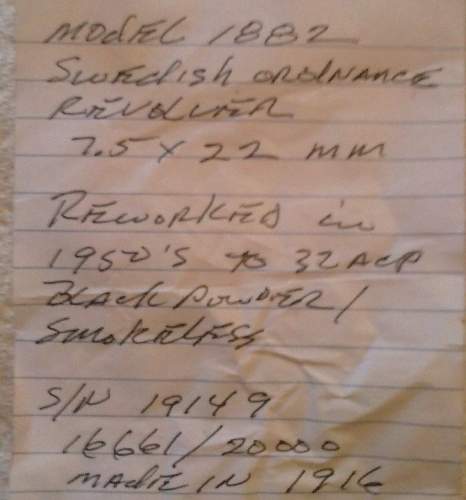 MODEL 1882
SWEDISH ORDINANCE
REVOLVER
7.5 X 22 mm
REWORKED in
1950'S to 32 ACP
BLACK POWDER /
SMOKELESS
S/N 19149
16661 / 20000
MADE IN 1916